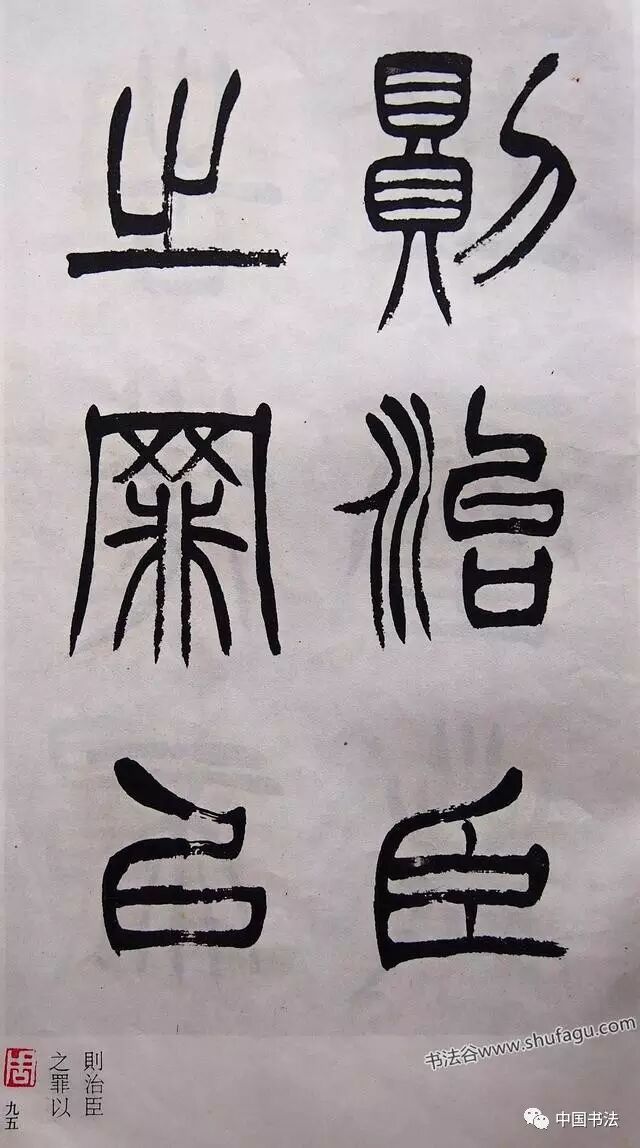 則治臣
之罪以
則治臣
之罪以
九五
书法谷www.shufagu.com
中国书法